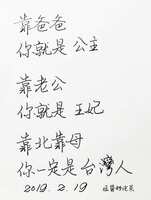 靠爸爸
你就是公主
靠老公
你就是王妃
靠北靠母
你一定是台灣人
2019.2.19